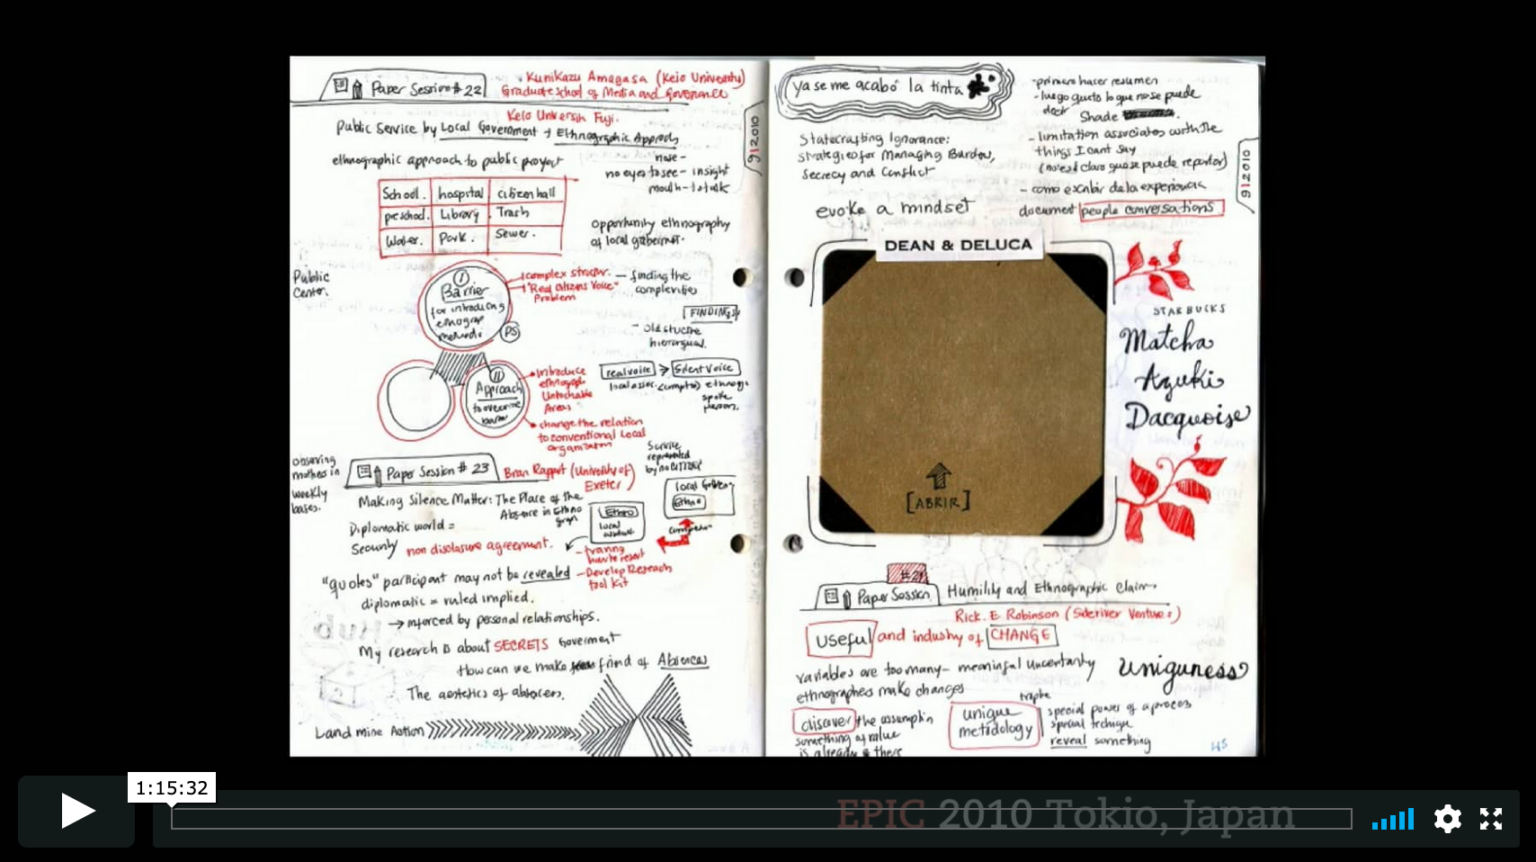 Paper Session # 22
Kunikazu Amagasa (Keio University)
Graduate school of Media and Governance
Keio Fuji.
Public Service by Local Government + Ethnographic Approach
ethnographic approach to public proyect
nose -
no eyes to see - insight
mouth - to talk
9|2010
School. hospital citizen hall
preschool. Library Trash
Water. Park. Sewer.
opportunity ethnography
of local
Public
Center.
I
Barrier
for introducing
PS
complex
"Real citizens Voice"
Problem
- finding the
complexities
[FINDINGS]
- old
real voice > Silent Voice
local
person.
II
Approach
to overcome
barrier
introduce
Untochable
Areas
change the relation
to conventional Local
organization
observing
mothers in
weekly
bases.
Paper Session # 23
Brian Rappert (University of
Exeter)
Making Silence Matter: The Place of the
Absence in Ethno
graph
Service
by
Local
Ethno
Ethno
local
Diplomatic world =
Security non disclosure agreement.
- training
- Develop Research
tool kit
"quotes" participant may not be revealed
diplomatic = ruled implied.
→ inforced by personal relationships.
My research is about SECRETS Goverment
How can we make find of Absences
The aestetics of
Land mine Action
ya se me acabó la tinta
- primero hacer resumen
- luego que lo que no se puede
decir
Shade
- limitation associates with the
things I cant say
(no es claro que se puede reportar)
- como escribir de la experiencia
document people conversations
9|2010
Statecrafting Ignorance:
strategies for Managing Burdens,
Secrecy and Conflict
evoke a mindset
DEAN & DELUCA
[ABRIR]
STARBUCKS
Matcha
Azuki
Dacquoise
Paper Session
Humility and Ethnographic Claim
Rick. E Robinson (Sideriver Ventures)
useful and industry of CHANGE
variables are too many - meaningful uncertanty
ethnographers make changes
Uniguness
discover the assumption
something of value
is already there
unique
metodology
special power of a process
special technique
reveal something
45
1:15:32
EPIC 2010 Tokio, Japan